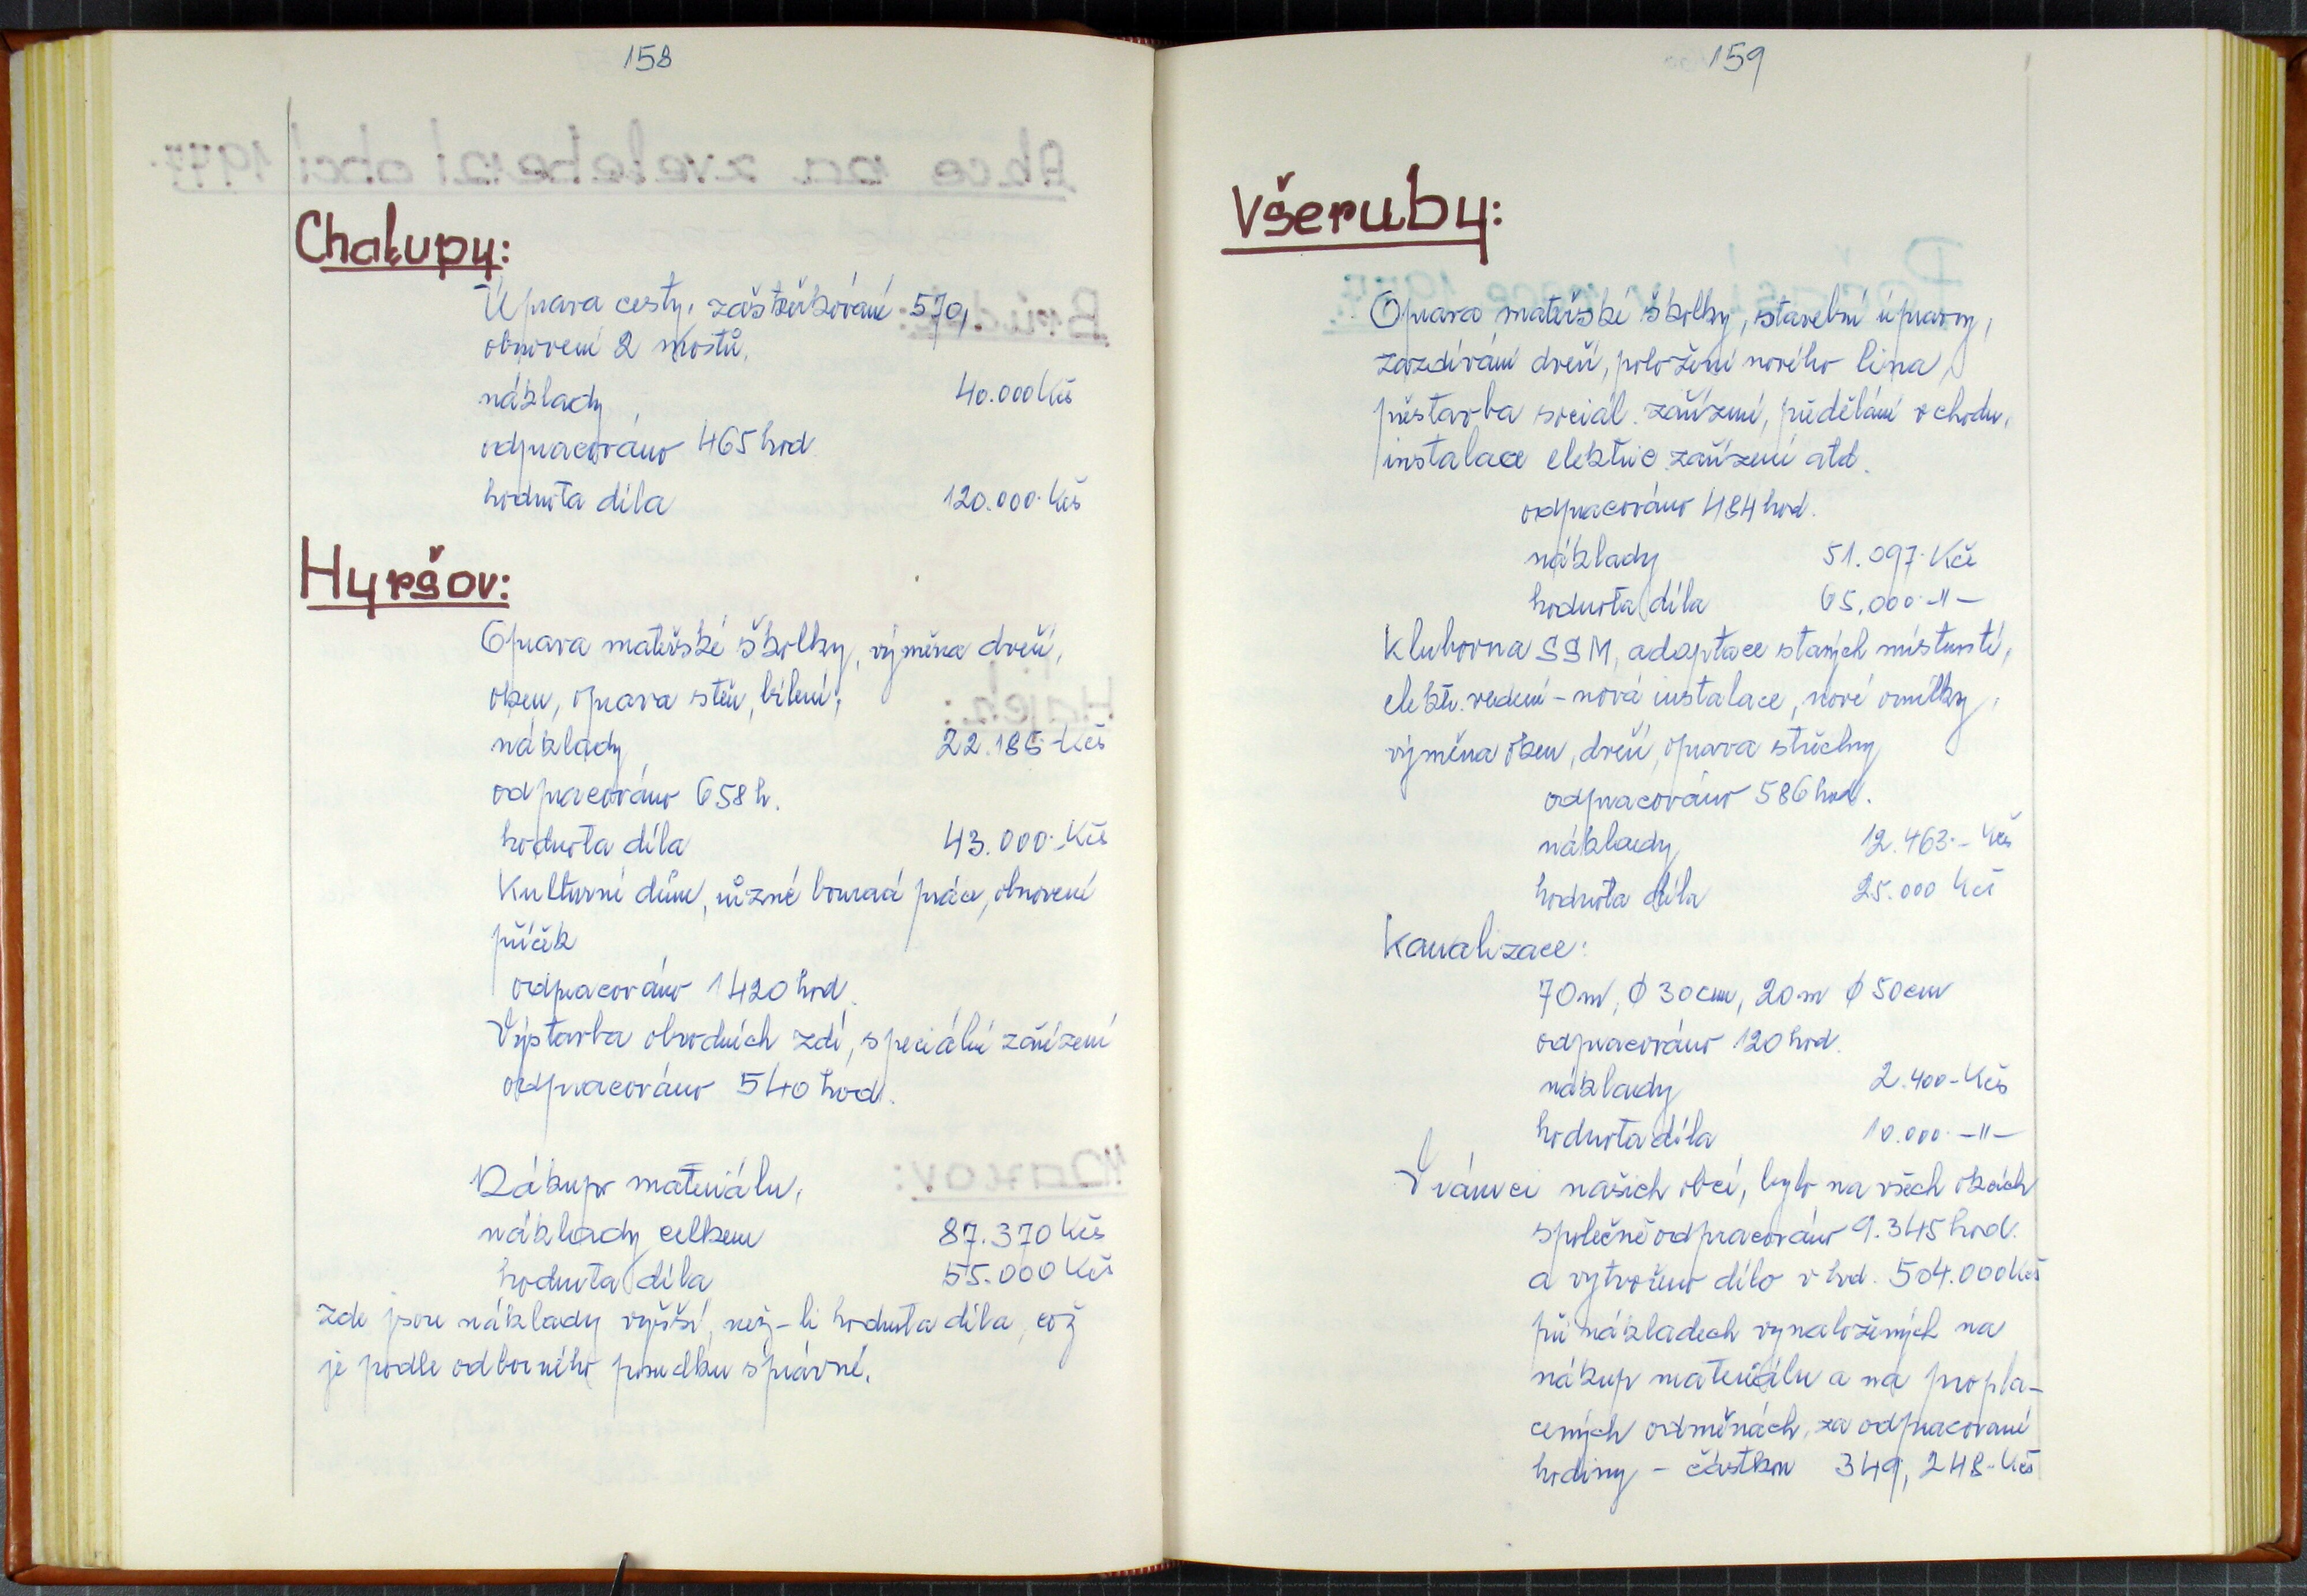 158
Chalupy:
Úprava cesty, zaštěrkování 570,
obnovení 2 mostů,
náklady 40.000 Kčs
odpracováno 465 hod.
hodnota díla 120.000.- Kčs
Hyršov:
Oprava mateřské školky, výměna dveří,
oken, oprava stěn, bílení,
náklady 22.185.- Kčs
odpracováno 658 h.
hodnota díla 43.000.- Kčs
Kulturní dům, různé bourací práce, obnovení
příček
odpracováno 1420 hod.
Výstavba obvodních zdí, speciální zařízení
odpracováno 540 hod.
Nákup materiálu,
náklady celkem 87.370 Kčs
hodnota díla 55.000 Kčs
Zde jsou náklady vyšší, než-li hodnota díla, což
je podle odborného posudku správné.
159
Všeruby:
Oprava mateřské školky, stavební úpravy,
zazdívání dveří, položení nového lina,
přestavba sociál. zařízení, předělání vchodu,
instalace elektric. zařízení atd.
odpracováno 484 hod.
náklady 51.097.- Kčs
hodnota díla 65.000.- -"-
Klubovna SSM, adaptace starých místností,
elektr. vedení - nová instalace, nové omítky,
výměna oken, dveří, oprava střechy
odpracováno 586 hod.
náklady 12.463.- Kčs
hodnota díla 25.000 Kčs
Kanalizace:
70 m, ϕ 30 cm, 20 m ϕ 50 cm
odpracováno 120 hod.
náklady 2.400.- Kčs
hodnota díla 10.000.- -"-
V rámci našich obcí, bylo na všech akcích
společně odpracováno 9.345 hod.
a vytvořeno dílo v hod. 504.000 Kčs
při nákladech vynaložených na
nákup materiálu a na propla-
cených odměnách, za odpracované
hodiny - částkou 349,248.- Kčs